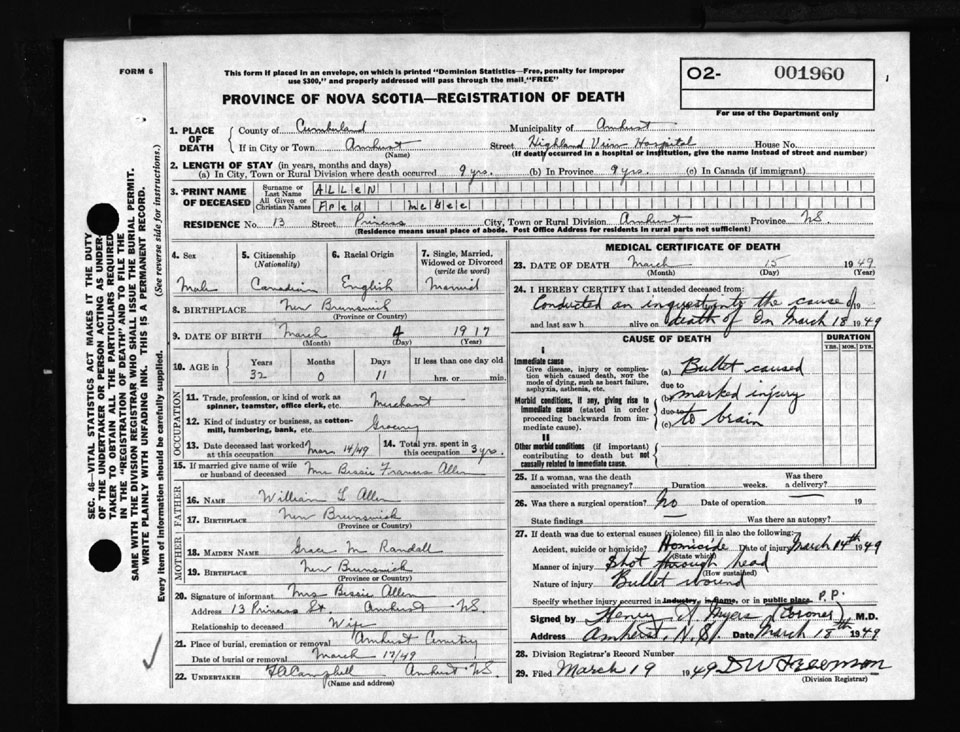 FORM 6
This form if placed in an envelope, on which is printed "Dominion Statistics—Free, penalty for improper
use $300," and properly addressed will pass through the mail "FREE"
PROVINCE OF NOVA SCOTIA—REGISTRATION OF DEATH
02- 001960
For use of the Department only
1. PLACE OF DEATH
County of Cumberland Municipality of Amherst
If in City or Town Amherst Street Highland View Hospital House No.
(Name) (If death occurred in a hospital or institution, give the name instead of street and number)
2. LENGTH OF STAY (in years, months and days)
(a) In City, Town or Rural Division where death occurred 9 yrs. (b) In Province 9 yrs. (c) In Canada (if immigrant)
3. PRINT NAME OF DECEASED
Surname or Last Name ALLEN
All Given or Christian Names Fred McGee
RESIDENCE No. 13 Street Princess City, Town or Rural Division Amherst Province N.S.
(Residence means usual place of abode. Post Office Address for residents in rural parts not sufficient)
4. Sex
Male
5. Citizenship (Nationality)
Canadian
6. Racial Origin
English
7. Single, Married, Widowed or Divorced (write the word)
Married
8. BIRTHPLACE New Brunswick
(Province or Country)
9. DATE OF BIRTH March 4 1917
(Month) (Day) (Year)
10. AGE in Years Months Days If less than one day old
32 0 11 hrs. or min.
OCCUPATION
11. Trade, profession, or kind of work as spinner, teamster, office clerk, etc. Merchant
12. Kind of industry or business, as cotten-mill, lumbering, bank, etc. Grocery
13. Date deceased last worked at this occupation Mar 14/49
14. Total yrs. spent in this occupation 3 yrs.
15. If married give name of wife or husband of deceased Mrs Bessie Frances Allen
FATHER
16. NAME William L Allen
17. BIRTHPLACE New Brunswick
(Province or Country)
MOTHER
18. MAIDEN NAME Grace M Randall
19. BIRTHPLACE New Brunswick
(Province or Country)
20. Signature of informant Mrs Bessie Allen
Address 13 Princess St. Amherst N.S.
Relationship to deceased Wife
21. Place of burial, cremation or removal Amherst Cemetery
Date of burial or removal March 17/49
22. UNDERTAKER Campbell Amherst N.S.
(Name and address)
MEDICAL CERTIFICATE OF DEATH
23. DATE OF DEATH March 15 1949
(Month) (Day) (Year)
24. I HEREBY CERTIFY that I attended deceased from:
Conducted an inquest into the cause of 19
and last saw h alive on death of on March 18 1949
CAUSE OF DEATH
DURATION
YRS. MOS. DYS.
I
Immediate cause
Give disease, injury or complication which caused death, NOT the mode of dying, such as heart failure, asphyxia, asthenia, etc.
(a) Bullet caused
due to
Morbid conditions, if any, giving rise to immediate cause (stated in order proceeding backwards from immediate cause).
(b) marked injury
due to
(c) to brain
II
Other morbid conditions (if important) contributing to death but NOT causally related to immediate cause.
25. If a woman, was the death associated with pregnancy? Duration weeks. Was there a delivery?
26. Was there a surgical operation? No Date of operation 19
State findings Was there an autopsy?
27. If death was due to external causes (violence) fill in also the following:
Accident, suicide or homicide? Homicide Date of injury March 14th 1949
(State which)
Manner of injury Shot through head
(How sustained)
Nature of injury Bullet wound
Specify whether injury occurred in industry, in home, or in public place. P.P.
Signed by Henry Myers (Coroner) M.D.
Address Amherst, N.S. Date March 18th 1949
28. Division Registrar's Record Number
29. Filed March 19 1949
(Division Registrar)
SEC. 46—VITAL STATISTICS ACT MAKES IT THE DUTY
OF THE UNDERTAKER OR PERSON ACTING AS UNDER-
TAKER TO OBTAIN ALL THE PARTICULARS REQUIRED
IN THE "REGISTRATION OF DEATH" AND TO FILE THE
SAME WITH THE DIVISION REGISTRAR WHO SHALL ISSUE THE BURIAL PERMIT.
WRITE PLAINLY WITH UNFADING INK. THIS IS A PERMANENT RECORD.
Every item of information should be carefully supplied. (See reverse side for instructions.)